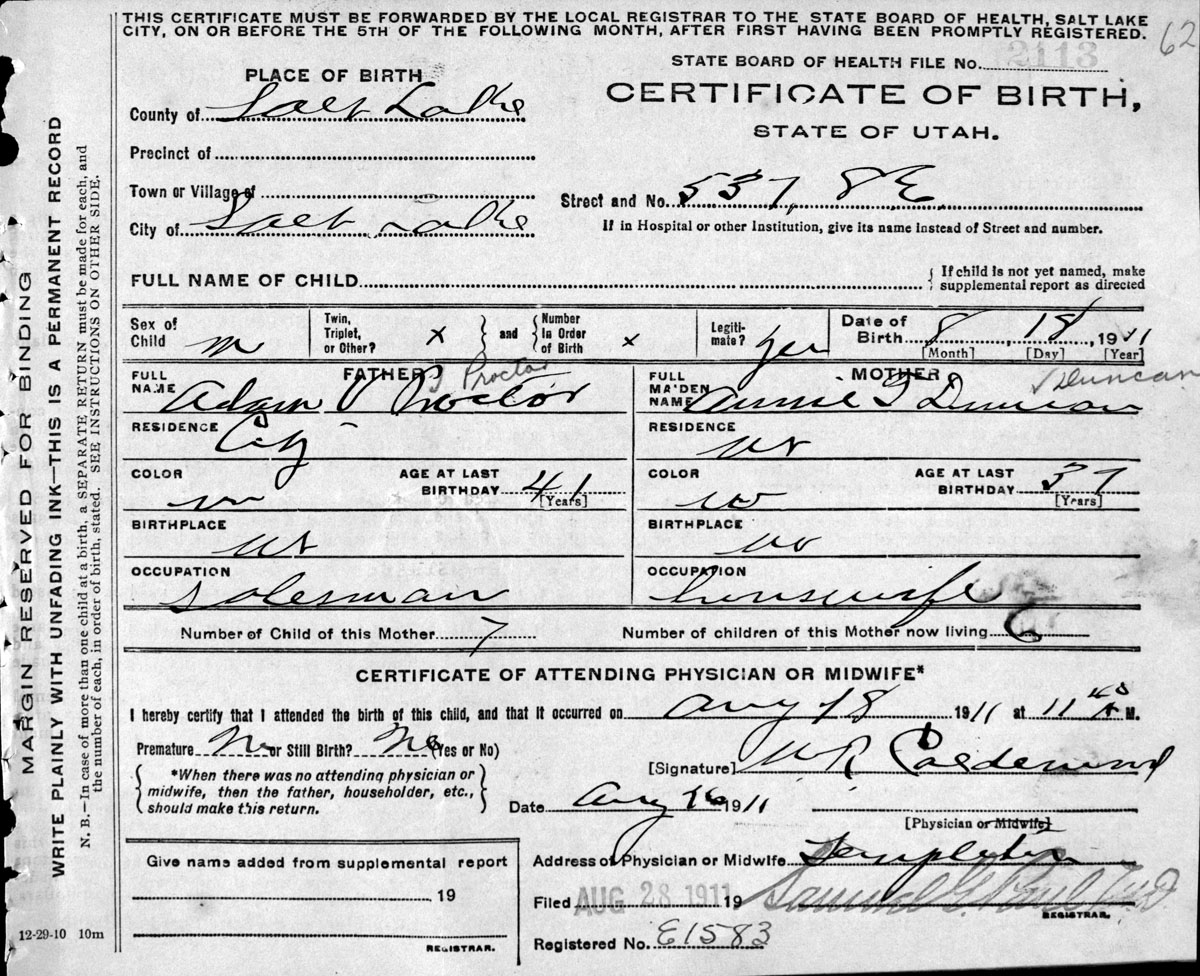 THIS CERTIFICATE MUST BE FORWARDED BY THE LOCAL REGISTRAR TO THE STATE BOARD OF HEALTH, SALT LAKE
CITY, ON OR BEFORE THE 5TH OF THE FOLLOWING MONTH, AFTER FIRST HAVING BEEN PROMPTLY REGISTERED.
62
STATE BOARD OF HEALTH FILE No. 2113
PLACE OF BIRTH
CERTIFICATE OF BIRTH,
STATE OF UTAH.
County of Salt Lake
Precinct of
Town or Village of
Street and No. 537, 8 E.
City of Salt Lake
If in Hospital or other Institution, give its name instead of Street and number.
FULL NAME OF CHILD
{ If child is not yet named, make
supplemental report as directed
Sex of Child m
Twin, Triplet, or Other? x } and { Number In Order of Birth x
Legitimate? yes
Date of Birth 8, 18, 1911
[Month] [Day] [Year]
FATHER
J Proctor
FULL NAME Adam Proctor
MOTHER
√ Duncan
FULL MAIDEN NAME Annie Duncan
RESIDENCE City
RESIDENCE
COLOR
AGE AT LAST BIRTHDAY 41 [Years]
COLOR w
AGE AT LAST BIRTHDAY 37 [Years]
BIRTHPLACE ut
BIRTHPLACE
OCCUPATION salesman
OCCUPATION housewife
Number of Child of this Mother 7
Number of children of this Mother now living 6
CERTIFICATE OF ATTENDING PHYSICIAN OR MIDWIFE*
I hereby certify that I attended the birth of this child, and that it occurred on Aug 18 1911 at 11 45 A M.
Premature No or Still Birth? No (Yes or No)
{ *When there was no attending physician or
midwife, then the father, householder, etc.,
should make this return. }
[Signature] W R Calderwood
Date Aug 1911
[Physician or Midwife]
Address of Physician or Midwife Templeton
Filed AUG 28 1911 19
Samuel G. Paul M.D.
REGISTRAR.
Registered No. E1583
Give name added from supplemental report
19
REGISTRAR.
12-29-10 10m
MARGIN RESERVED FOR BINDING
WRITE PLAINLY WITH UNFADING INK—THIS IS A PERMANENT RECORD
N. B.—In case of more than one child at a birth, a SEPARATE RETURN must be made for each, and
the number of each, in order of birth, stated. SEE INSTRUCTIONS ON OTHER SIDE.